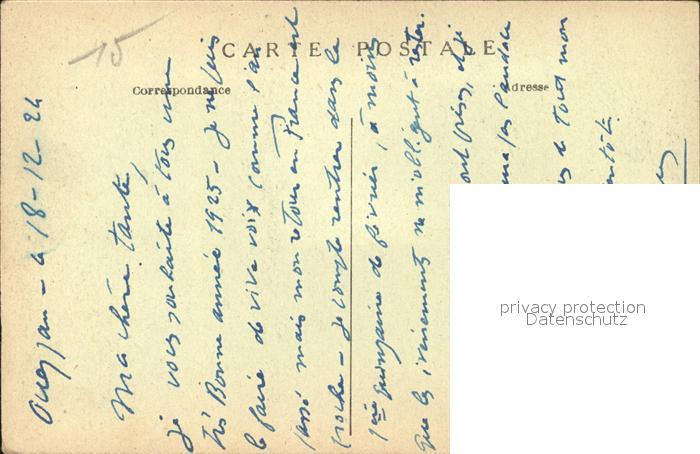 15
CARTE POSTALE
Correspondance
Adresse
Ouezzan - le 18-12-24
Ma chère Tante,
je vous souhaite à tous une
très Bonne année 1925 - Je ne puis
le faire de vive voix comme l'an
passé mais mon retour en France est
proche - Je compte rentrer dans la
1ère quinzaine de février, à moins
que les évènements ne m'obligent à rester.
ont pris, et je
pendant
de tout mon
bientôt.
privacy protection
Datenschutz